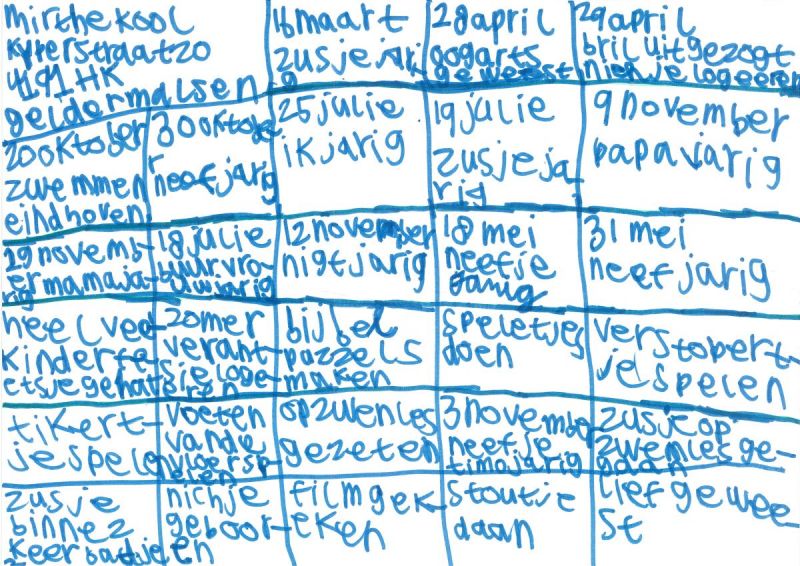 mirthe kool
4191HK
geldermalsen
16 maart
zusje jari
g
28 april
oogarts
geweest
29 april
bril uitgezogt
nienje logeeren
20 oktober
zwemmen
eindhoven
30 oktobe
r
neef jarig
25 julie
ik jarig
19 julie
zusje ja
rig
9 november
papa jarig
29 novemb-
er mama ja-
rig
18 julie
buurvro-
uw jarig
12 november
nigt jarig
18 mei
neefje
31 mei
neef jarig
heel veel
kinderfe-
etsje gehat
zomer
verant-
sie loge-
ren
bijbel
puzzels
maken
speletjes
doen
verstopert-
je spelen
tikert-
je spelen
voeten
van die
vloer sp-
elen
op zwemles
gezeten
3 november
neefje
timo jarig
zusje op
zwemles ge-
gaan
zusje
binnez
keer
nichje
geboor-
en
film gek-
eken
stoutje
daan
lief gewee
st